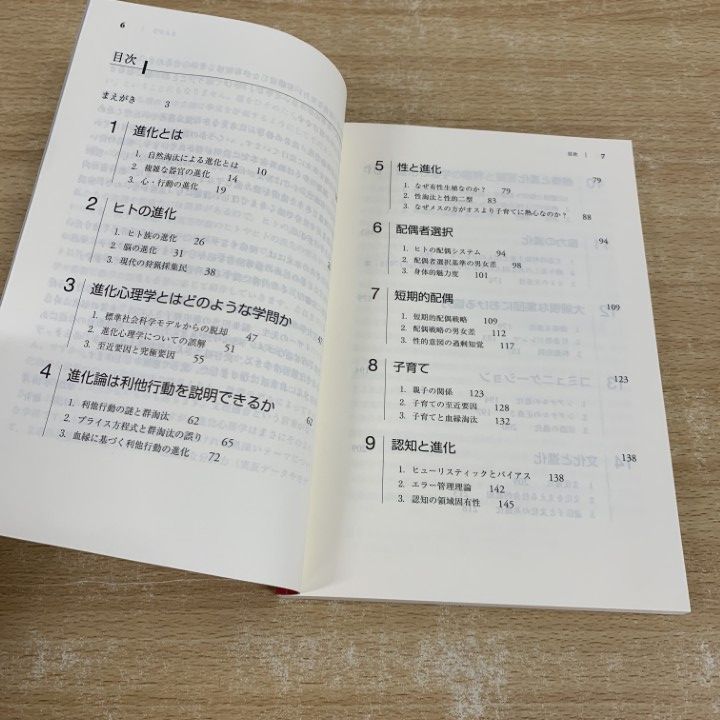 6
目次
まえがき 3
1 進化とは
1. 自然淘汰による進化とは 10
2. 複雑な器官の進化 14
3. 心・行動の進化 19
2 ヒトの進化
1. ヒト族の進化 26
2. 脳の進化 31
3. 現代の狩猟採集民 38
3 進化心理学とはどのような学問か
1. 標準社会科学モデルからの脱却 47
2. 進化心理学についての誤解 51
3. 至近要因と究極要因 55
4 進化論は利他行動を説明できるか
1. 利他行動の謎と群淘汰 62
2. プライス方程式と群淘汰の誤り 65
3. 血縁に基づく利他行動の進化 72
目次 | 7
5 性と進化 79
1. なぜ有性生殖なのか? 79
2. 性淘汰と性的二型 83
3. なぜメスの方がオスより子育てに熱心なのか? 88
6 配偶者選択 94
1. ヒトの配偶システム 94
2. 配偶者選択基準の男女差 98
3. 身体的魅力度 101
7 短期的配偶 109
1. 短期的配偶戦略 109
2. 配偶戦略の男女差 112
3. 性的意図の過剰知覚 117
8 子育て 123
1. 親子の関係 123
2. 子育ての至近要因 128
3. 子育てと血縁淘汰 132
9 認知と進化 138
1. ヒューリスティックとバイアス 138
2. エラー管理理論 142
3. 認知の領域固有性 145